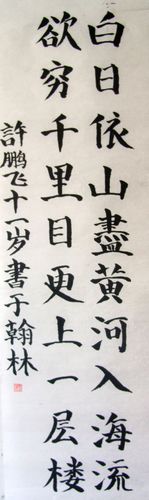 白日依山盡黄河入海流
欲穷千里目更上一层楼
許鹏飞十一岁書于翰林